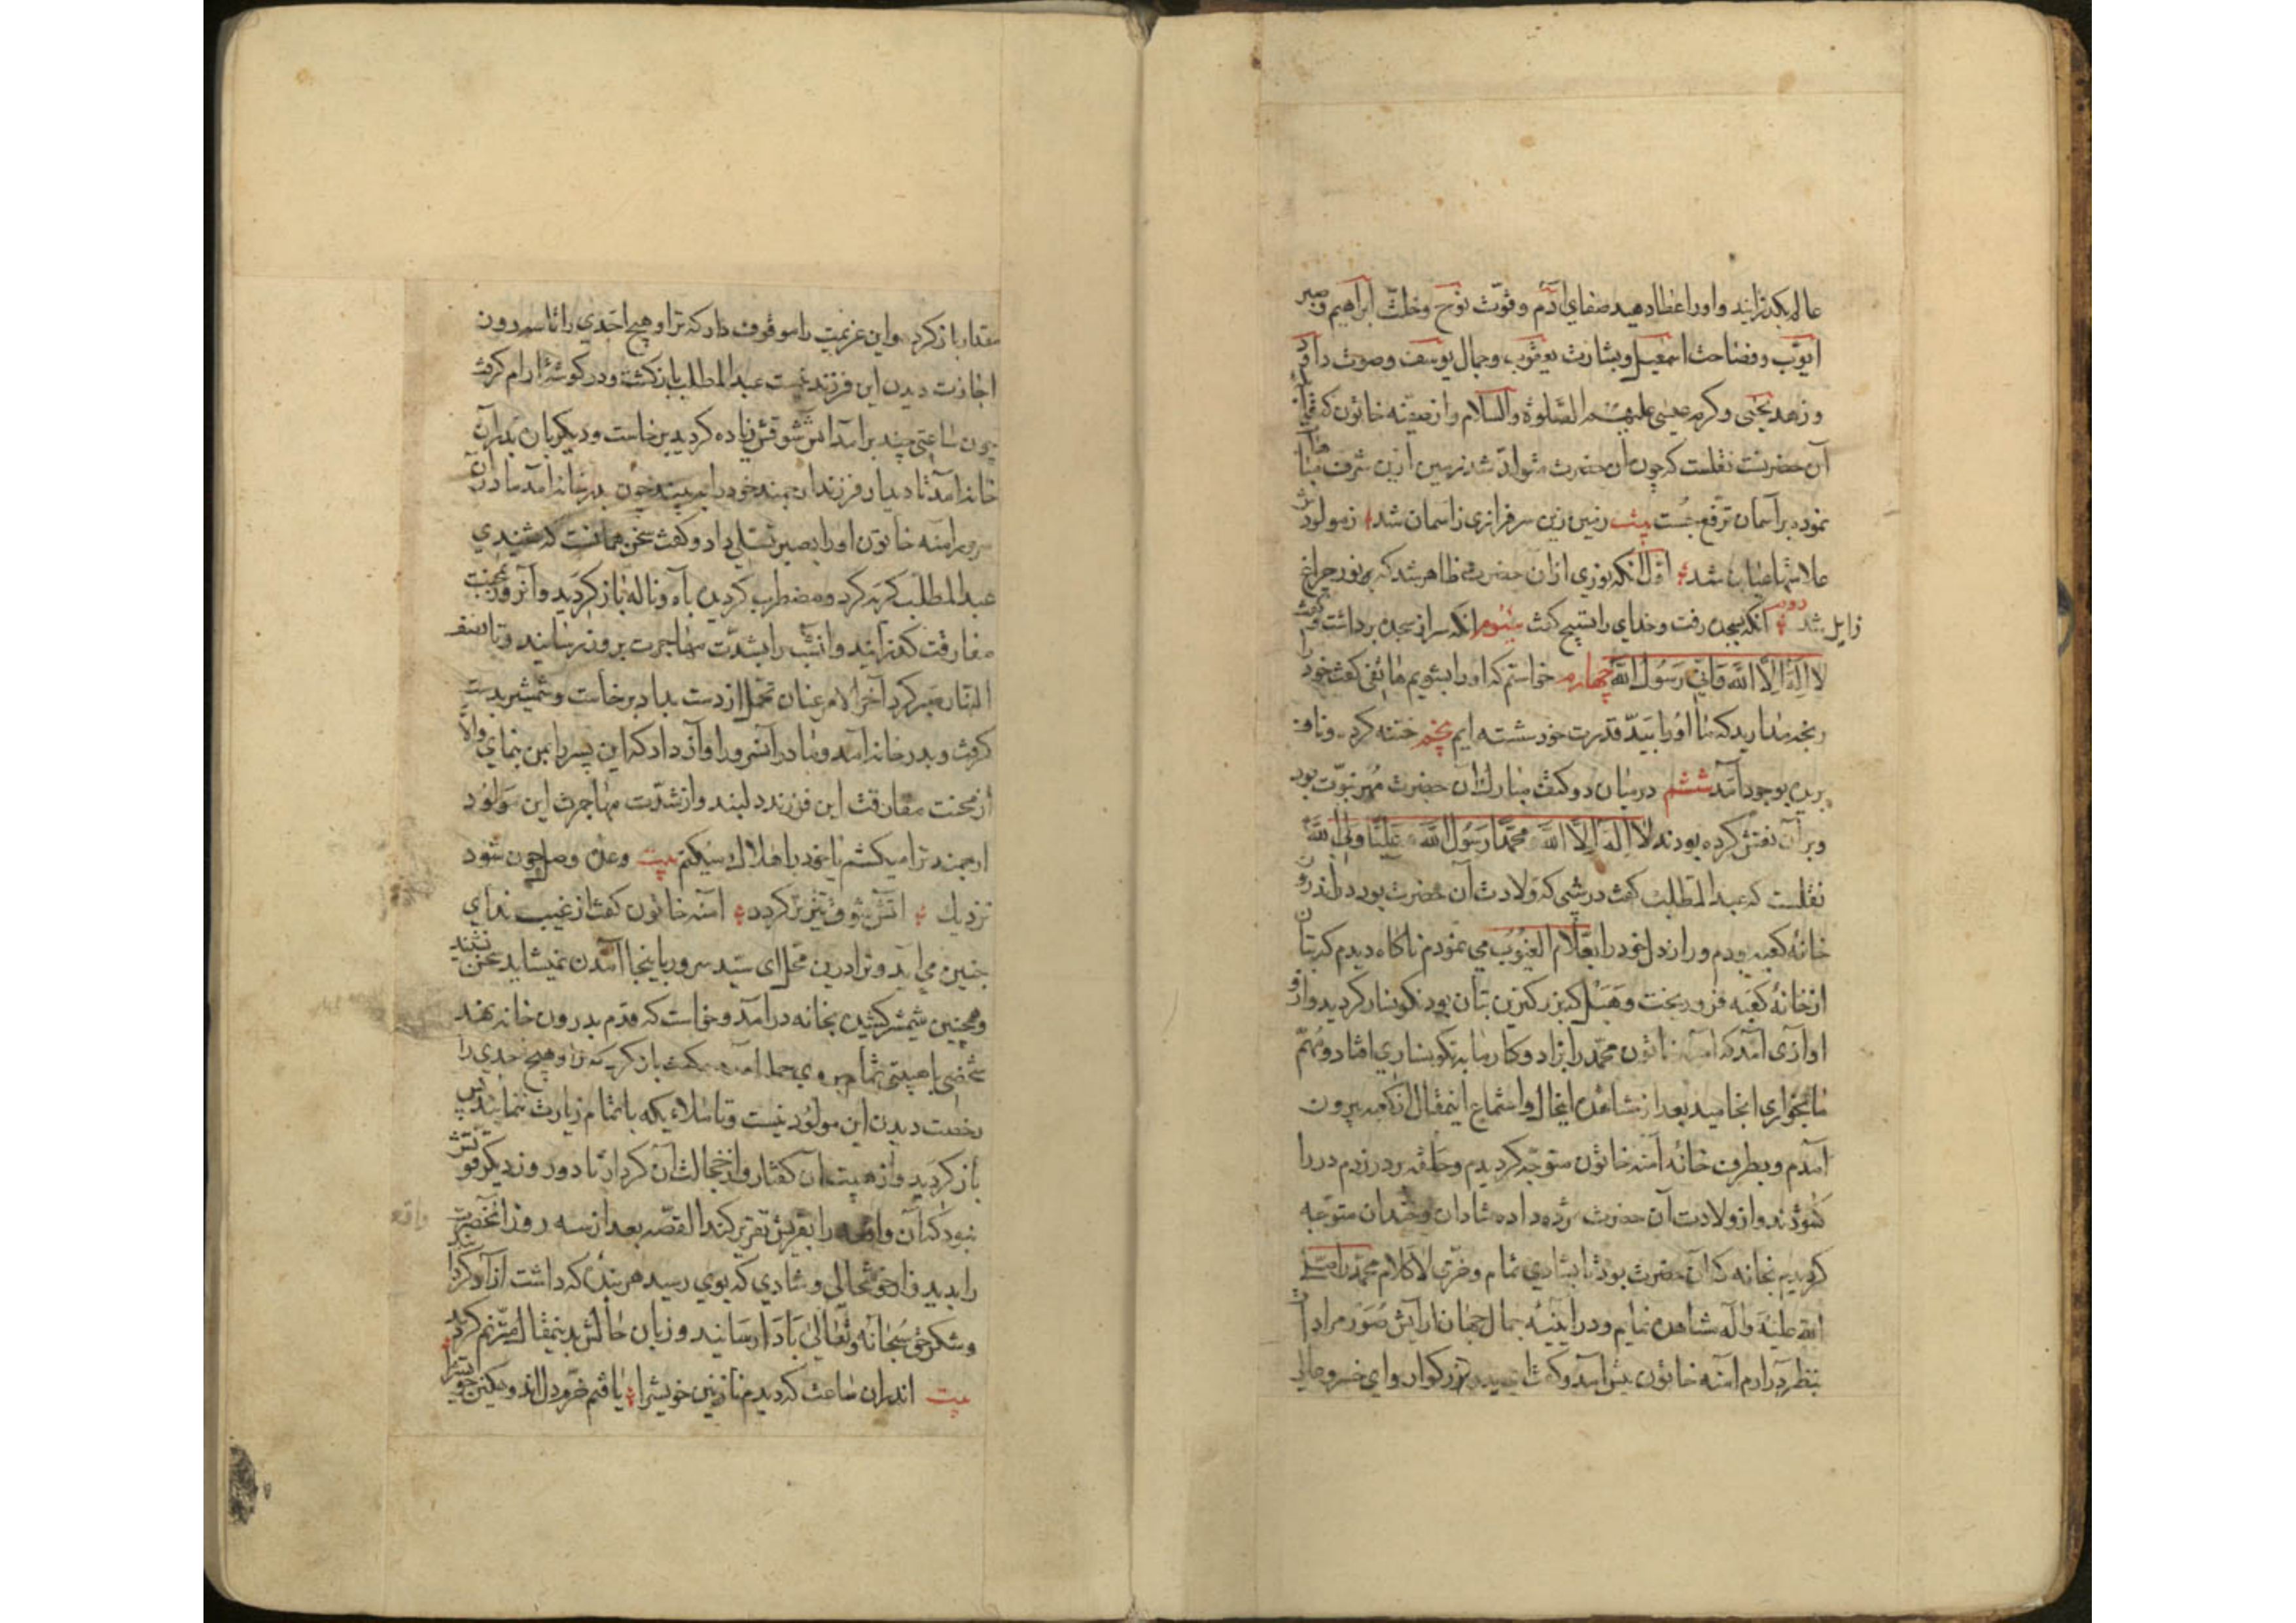 عالم بگذرانید و او را عطا دهید صفای آدم و قوّت نوح و خلّت ابراهیم و صبر
ایّوب و فصاحت اسمعیل و بشارت یعقوب و جمال یوسف و صوت داود
و زهد یحیی و کرم عیسی علیهم الصّلوة والسّلام و از صفیّه خاتون که
آن حضرتست نقلست که چون آن حضرت متولّد شد زمین ازین شرف
نموده بر آسمان ترفّع جست بیت زمین زین سرفرازی ز آسمان شد ز مولودش
علامتها عیان شد اوّل آنکه نوری از آن حضرت ظاهر شد که نور چراغ
زایل شد دویم آنکه بسجده رفت و خدای را تسبیح گفت سیوم آنکه سر از سجده برداشت و گفت
لا اله الّا الله و انّی رسول الله چهارم خواستم که او را بشویم هاتفی گفت خود را
رنجه مدارید که ما او را بید قدرت خود شسته ایم پنجم ختنه کرده و ناف
بریده بوجود آمد ششم در میان دو کتف مبارک آن حضرت مهر نبوّت بود
و بر آن نقش کرده بودند لا اله الّا الله محمّد رسول الله علیّا ولی الله
نقلست که عبد المطلب گفت در شبی که ولادت آن حضرت بود در اندرون
خانهٔ کعبه بودم و راز دل خود را بعلّام الغیوب می نمودم ناگاه دیدم که بتان
از خانهٔ کعبه فرو ریخت و هبل که بزرگترین بتان بود نگونسار گردید و از
او آوازی آمد که آمنه خاتون محمّد را بزاد و کار ما به نگونساری افتاد و مهمّ
ما بخواری انجامید بعد از مشاهده اینحال و استماع اینمقال از کعبه بیرون
آمدم و بطرف خانهٔ آمنه خاتون متوجّه گردیدم و حلقه بر در زدم در را
گشودند و از ولادت آن حضرت مژده داده شادان و خندان متوجّه
گردیدم بخانه که آن حضرت بود تا بشادی تمام و خرّمی لا کلام محمّد را صلّی
الله علیه و آله مشاهده نمایم و در آیینهٔ جمال جهان آرایش صور مراد آن
بنظر درآرم آمنه خاتون پیش آمد و گفت ای سید بزرگوار و ای خسرو
مقدار باز گرد و این عزیمت را موقوف دار که ترا و هیچ احدی را تا سه روز
اجازت دیدن این فرزند نیست عبد المطلب باز گشت و در گوشهٔ آرام گرفت
چون ساعتی چند برآمد آتش شوقش زیاده گردید برخاست و دیگر بان بدر آن
خانه آمد تا دیدار فرزند ارجمند خود را ببیند چون بدر خانه آمد مادر آن
سرور آمنه خاتون او را بصبر تسلّی داد و گفت سخن همانست که شنیدی
عبد المطلب گریه کرد و مضطرب گردیده بآه و ناله باز گردید و آنروز بمحنت
مفارقت گذرانید و آنشب را بشدّت مهاجرت بروز رسانید و تا نصف
النهار صبر کرد آخر الامر عنان تحمّل از دست بداد برخاست و شمشیر بدست
گرفت و بدر خانه آمد و مادر آنسرور را آواز داد که این پسر را بمن بنمای والّا
از محنت مفارقت این فرزند دلبند و از شدّت مهاجرت این مولود
ارجمند ترا میکشم یا خود را هلاک میکنم بیت وعده وصل چون شود
نزدیک آتش شوق تیزتر گردد آمنه خاتون گفت از غیب ندای
چنین می آید و ترا درین محل ای سیّد سرور باینجا آمدن نمیشاید سخن نشنید
و همچنین شمشیر کشیده بخانه درآمد و خواست که قدم بدرون خانه نهد
شخصی با هیبتی تمام بر وی حمله آورد و گفت باز گرد که ترا و هیچ احدی را
رخصت دیدن این مولود نیست و تا ملائکه باتمام زیارت ننمایند پس
باز گردید و از هیبت آن گفتار و از خجالت آن کردار تا دو روز دیگر قوتش
نبود که آن واقعه را بقریش تقریر کند القصّه بعد از سه روز آنحضرت
واقعه
را بدید و از خوشحالی و شادی که بوی رسید هر بنده که داشت آزاد کرد
و شکر حقّ سبحانه و تعالی بادا رسانید و زبان حالش بدینمقال مترنم گردید
بیت اندران ساعت که دیدم نازنین خویشرا یافتم خرّم دل اندوهگین خویشرا